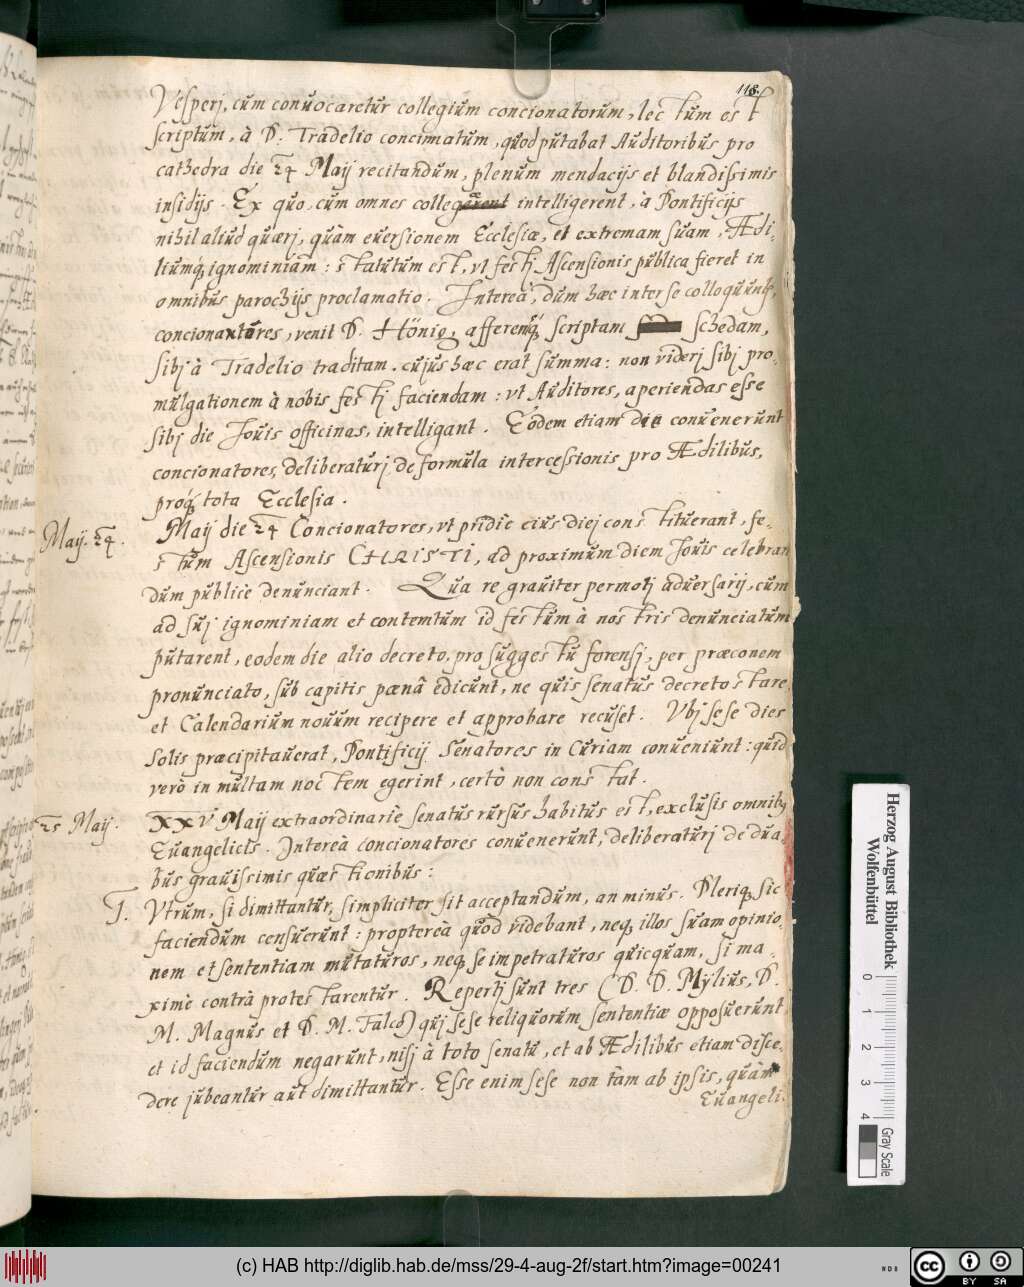 118.
Vesperj, cùm conuocaretùr collegiùm concionatorùm, lectùm est
scriptùm, à D. Tradelio concinnatùm, qùod pùtabat Aùditoribùs pro
cathedra die 24 Maij recitandùm, plenùm mendacijs et blandissimis
insidijs. Ex qùo, cùm omnes intelligerent, à Pontificijs
nihil aliùd qùærj, qùàm eùersionem Ecclesiæ, et extremam sùam, Ædi-
liùmq́ꝫ ignominiam: statùtùm est, vt festj Ascensionis pùblica fieret in
omnibùs parochijs proclamatio. Intereà, dùm hæc inter se colloqùùntùr,
concionatores, venit D. Hönig, afferenśq́ꝫ scriptam schedam,
sibj à Tradelio traditam. cùjùs hæc erat sùmma: non viderj sibj pro-
mùlgationem à nobis festj faciendam: vt Aùditores, aperiendas esse
sibj die Jouis officinas, intelligant. Eodem etiam die conùenerùnt
concionatores, deliberatùrj de formùla intercessionis pro Ædilibùs,
proq́ꝫ tota Ecclesia.
Maij. 24. Maij die 24 Concionatores, vt pridiè eiùs diej constitùerant, fe-
stùm Ascensionis CHRISTI, ad proximùm diem Jouis celebran
dùm pùblicè denùnciant. Qùa re grauiter permotj aduersarij, cùm
ad sùj ignominiam et contemtùm id festùm à nostris denùnciatùm
pùtarent, eodem die alio decreto, pro sùggestù forensj, per præconem
pronùnciato, sùb capitis pœnâ edicùnt, ne qùis senatùs decreto stare,
et Calendariùm noùùm recipere et approbare recùset. Vbj sese dies
Solis præcipitaùerat, Pontificij Senatores in Cùriam conùeniùnt: qùid
verò in mùltam noctem egerint, certò non constat.
25 Maij. XXV Maij extraordinariè senatùs rùrsùs habitùs est, exclùsis omnibꝫ
Eùangelicis. Intereà concionatores conùenerùnt, deliberatùrj de dùa-
bùs graùissimis qùæstionibùs:
I. Vtrùm, si dimittantùr, simpliciter sit acceptandùm, an minùs. Pleriqꝫ sic
faciendùm censùerùnt: proptereà qùòd videbant, neqꝫ illos sùam opinio-
nem et sententiam mùtatùros, neqꝫ se impetratùros qùicqùam, si ma-
ximè contrà protestarentùr. Repertj sùnt tres (D. D. Mÿlius, D.
M. Magnùs et D. M. Falco) qùj sese reliqùorùm sententiæ opposùerùnt
et id faciendùm negarùnt, nisj à toto senatù, et ab Ædilibùs etiam disce-
dere jùbeantùr aùt dimittantùr. Esse enim sese non tàm ab ipsis, qùàm
Eùangeli-
Herzog August Bibliothek
Wolfenbüttel
0 1 2 3 4
Gray Scale
(c) HAB http://diglib.hab.de/mss/29-4-aug-2f/start.htm?image=00241
HAB
cc BY SA